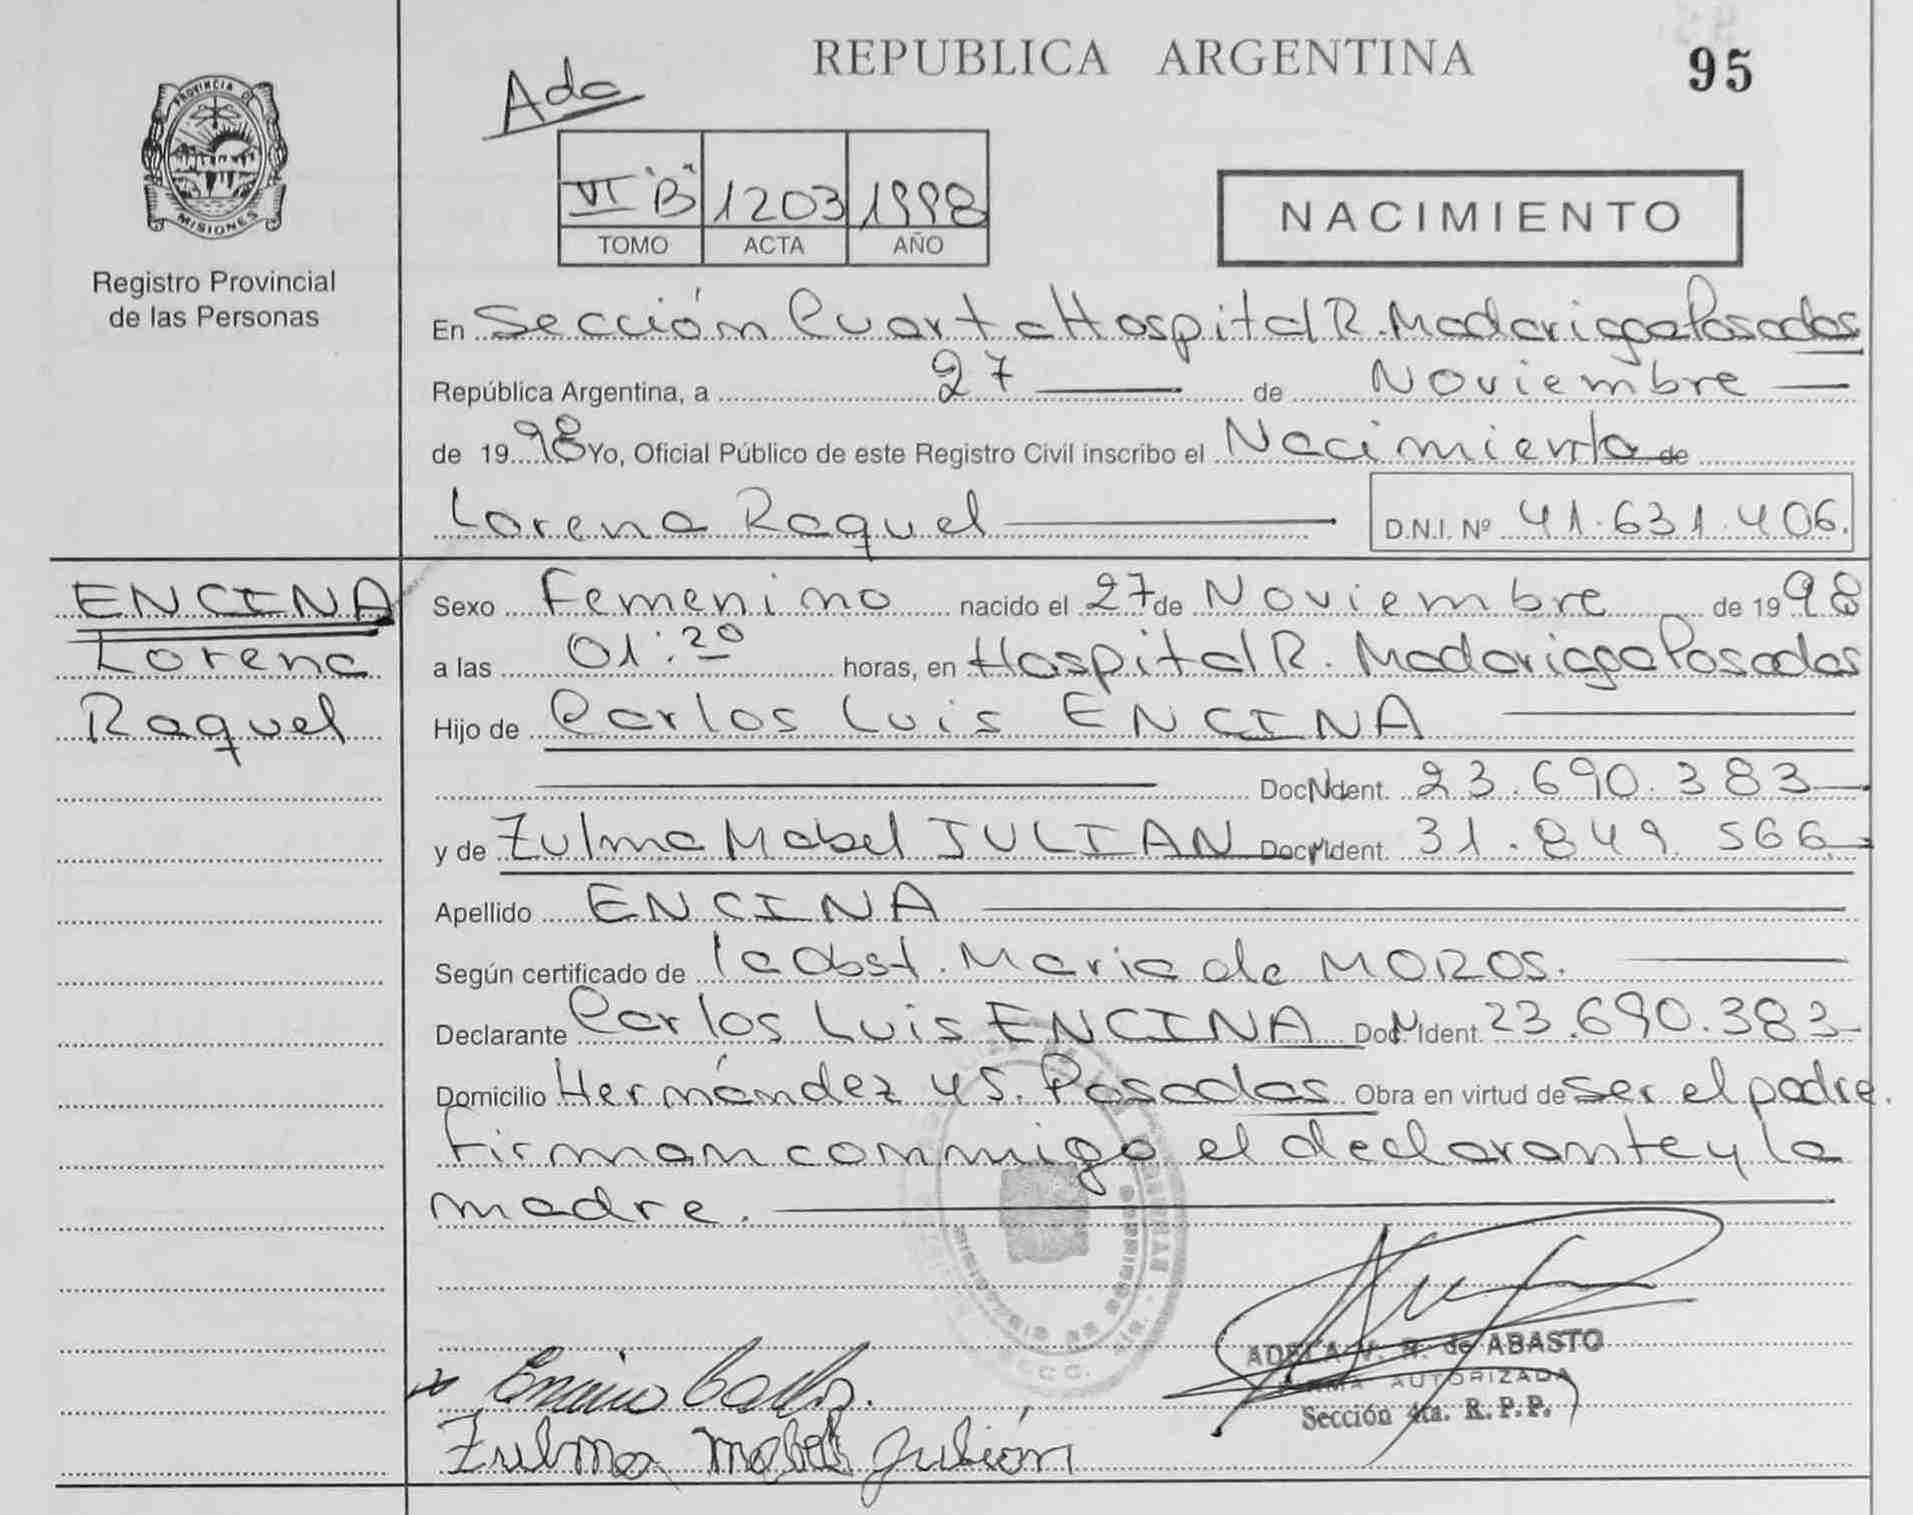 REPUBLICA ARGENTINA
95
Ada
PROVINCIA DE MISIONES
Registro Provincial
de las Personas
VI "B" 1203 1998
TOMO ACTA AÑO
NACIMIENTO
En Sección Cuarta Hospital R. Madariaga Posadas
República Argentina, a 27 de Noviembre
de 1998 Yo, Oficial Público de este Registro Civil inscribo el Nacimiento de
Lorena Raquel D.N.I. Nº 41.631.406.
ENCINA
Lorena
Raquel
Sexo Femenino nacido el 27 de Noviembre de 1998
a las 01:20 horas, en Hospital R. Madariaga Posadas
Hijo de Carlos Luis ENCINA
Doc N Ident. 23.690.383
y de Zulma Mabel JULIAN Doc N Ident. 31.849.566
Apellido ENCINA
Según certificado de la Obst. Maria de MOROS.
Declarante Carlos Luis ENCINA Doc N Ident. 23.690.383
Domicilio Hernández 45. Posadas Obra en virtud de ser el padre.
Firman conmigo el declarante y la
madre.
ADELA V. R. de ABASTO
FIRMA AUTORIZADA
Sección 4ta. R.P.P.
Encina Carlos.
Zulma Mabel Julián